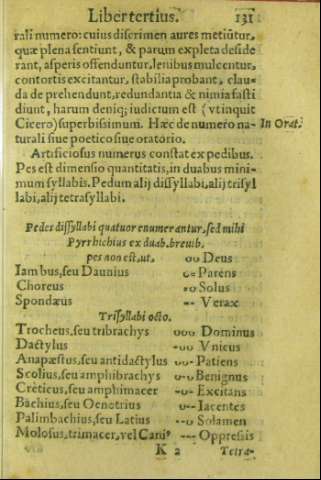 Liber tertius. 131
rali numero: cuius discrimen aures metiūtur,
quæ plena sentiunt, & parum expleta deside
rant, asperis offenduntur, lenibus mulcentur,
contortis excitantur, stabilia probant, clau-
da deprehendunt, redundantia & nimia fasti
diunt, harum deniq; iudicium est (vt inquit
Cicero) superbissimum. Hæc de numero na- In Orat.
turali siue poetico siue oratorio.
Artificiosus numerus constat ex pedibus.
Pes est dimensio quantitatis, in duabus mini-
mum syllabis. Pedum alij dissyllabi, alij trisyl
labi, alij tetrasyllabi.
Pedes dissyllabi quatuor enumerantur, sed mihi
Pyrrhichius ex duab. breuib.
pes non est, ut. ᴗᴗ Deus
Iambus, seu Daunius ᴗ- Parens
Choreus -ᴗ Solus
Spondæus -- Verax
Trissyllabi octo.
Trocheus, seu tribrachys ᴗᴗᴗ Dominus
Dactylus -ᴗᴗ Vnicus
Anapæstus, seu antidactylus ᴗᴗ- Patiens
Scolius, seu amphibrachys ᴗ-ᴗ Benignus
Creticus, seu amphimacer -ᴗ- Excitans
Bachius, seu Oenotrius ᴗ-- Iacentes
Palimbachius, seu Latius --ᴗ Solamen
Molosus, trimacer, vel Caniꝰ --- Oppressis
K 2 Tetra-